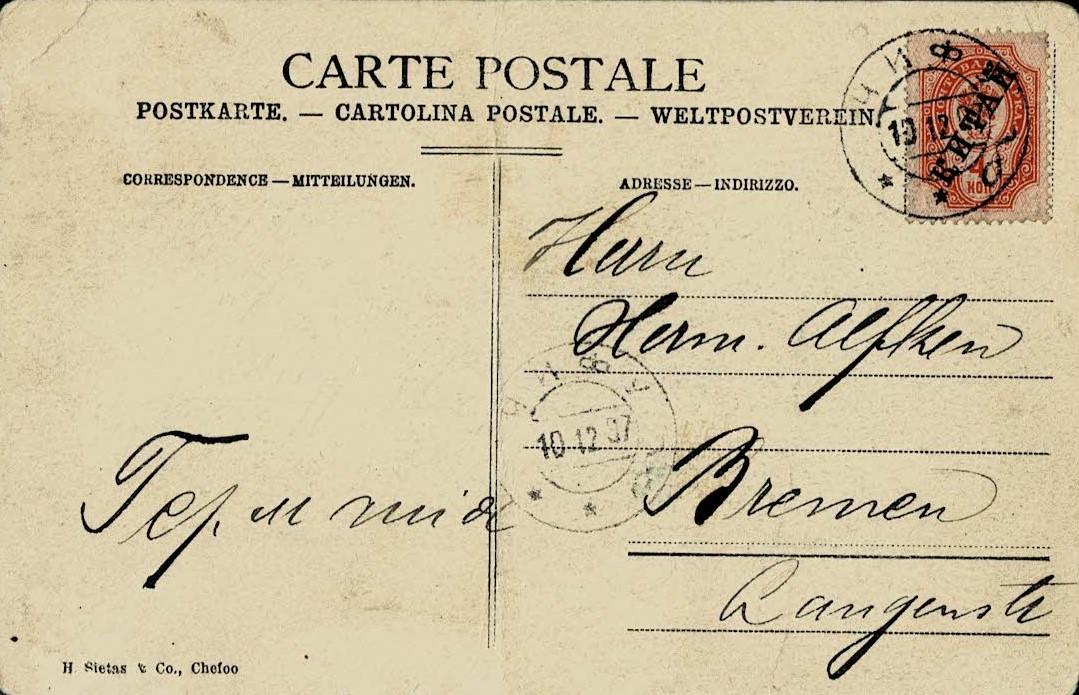 CARTE POSTALE
POSTKARTE. — CARTOLINA POSTALE. — WELTPOSTVEREIN
CORRESPONDENCE — MITTEILUNGEN.
ADRESSE — INDIRIZZO.
ЧИФУ
10 12
КИТАЙ
4
КОП
Herrn
Herm. Alfken
ЧИФУ
10 12 07
Bremen
Германія
Langenstr
H Sietas & Co., Chefoo